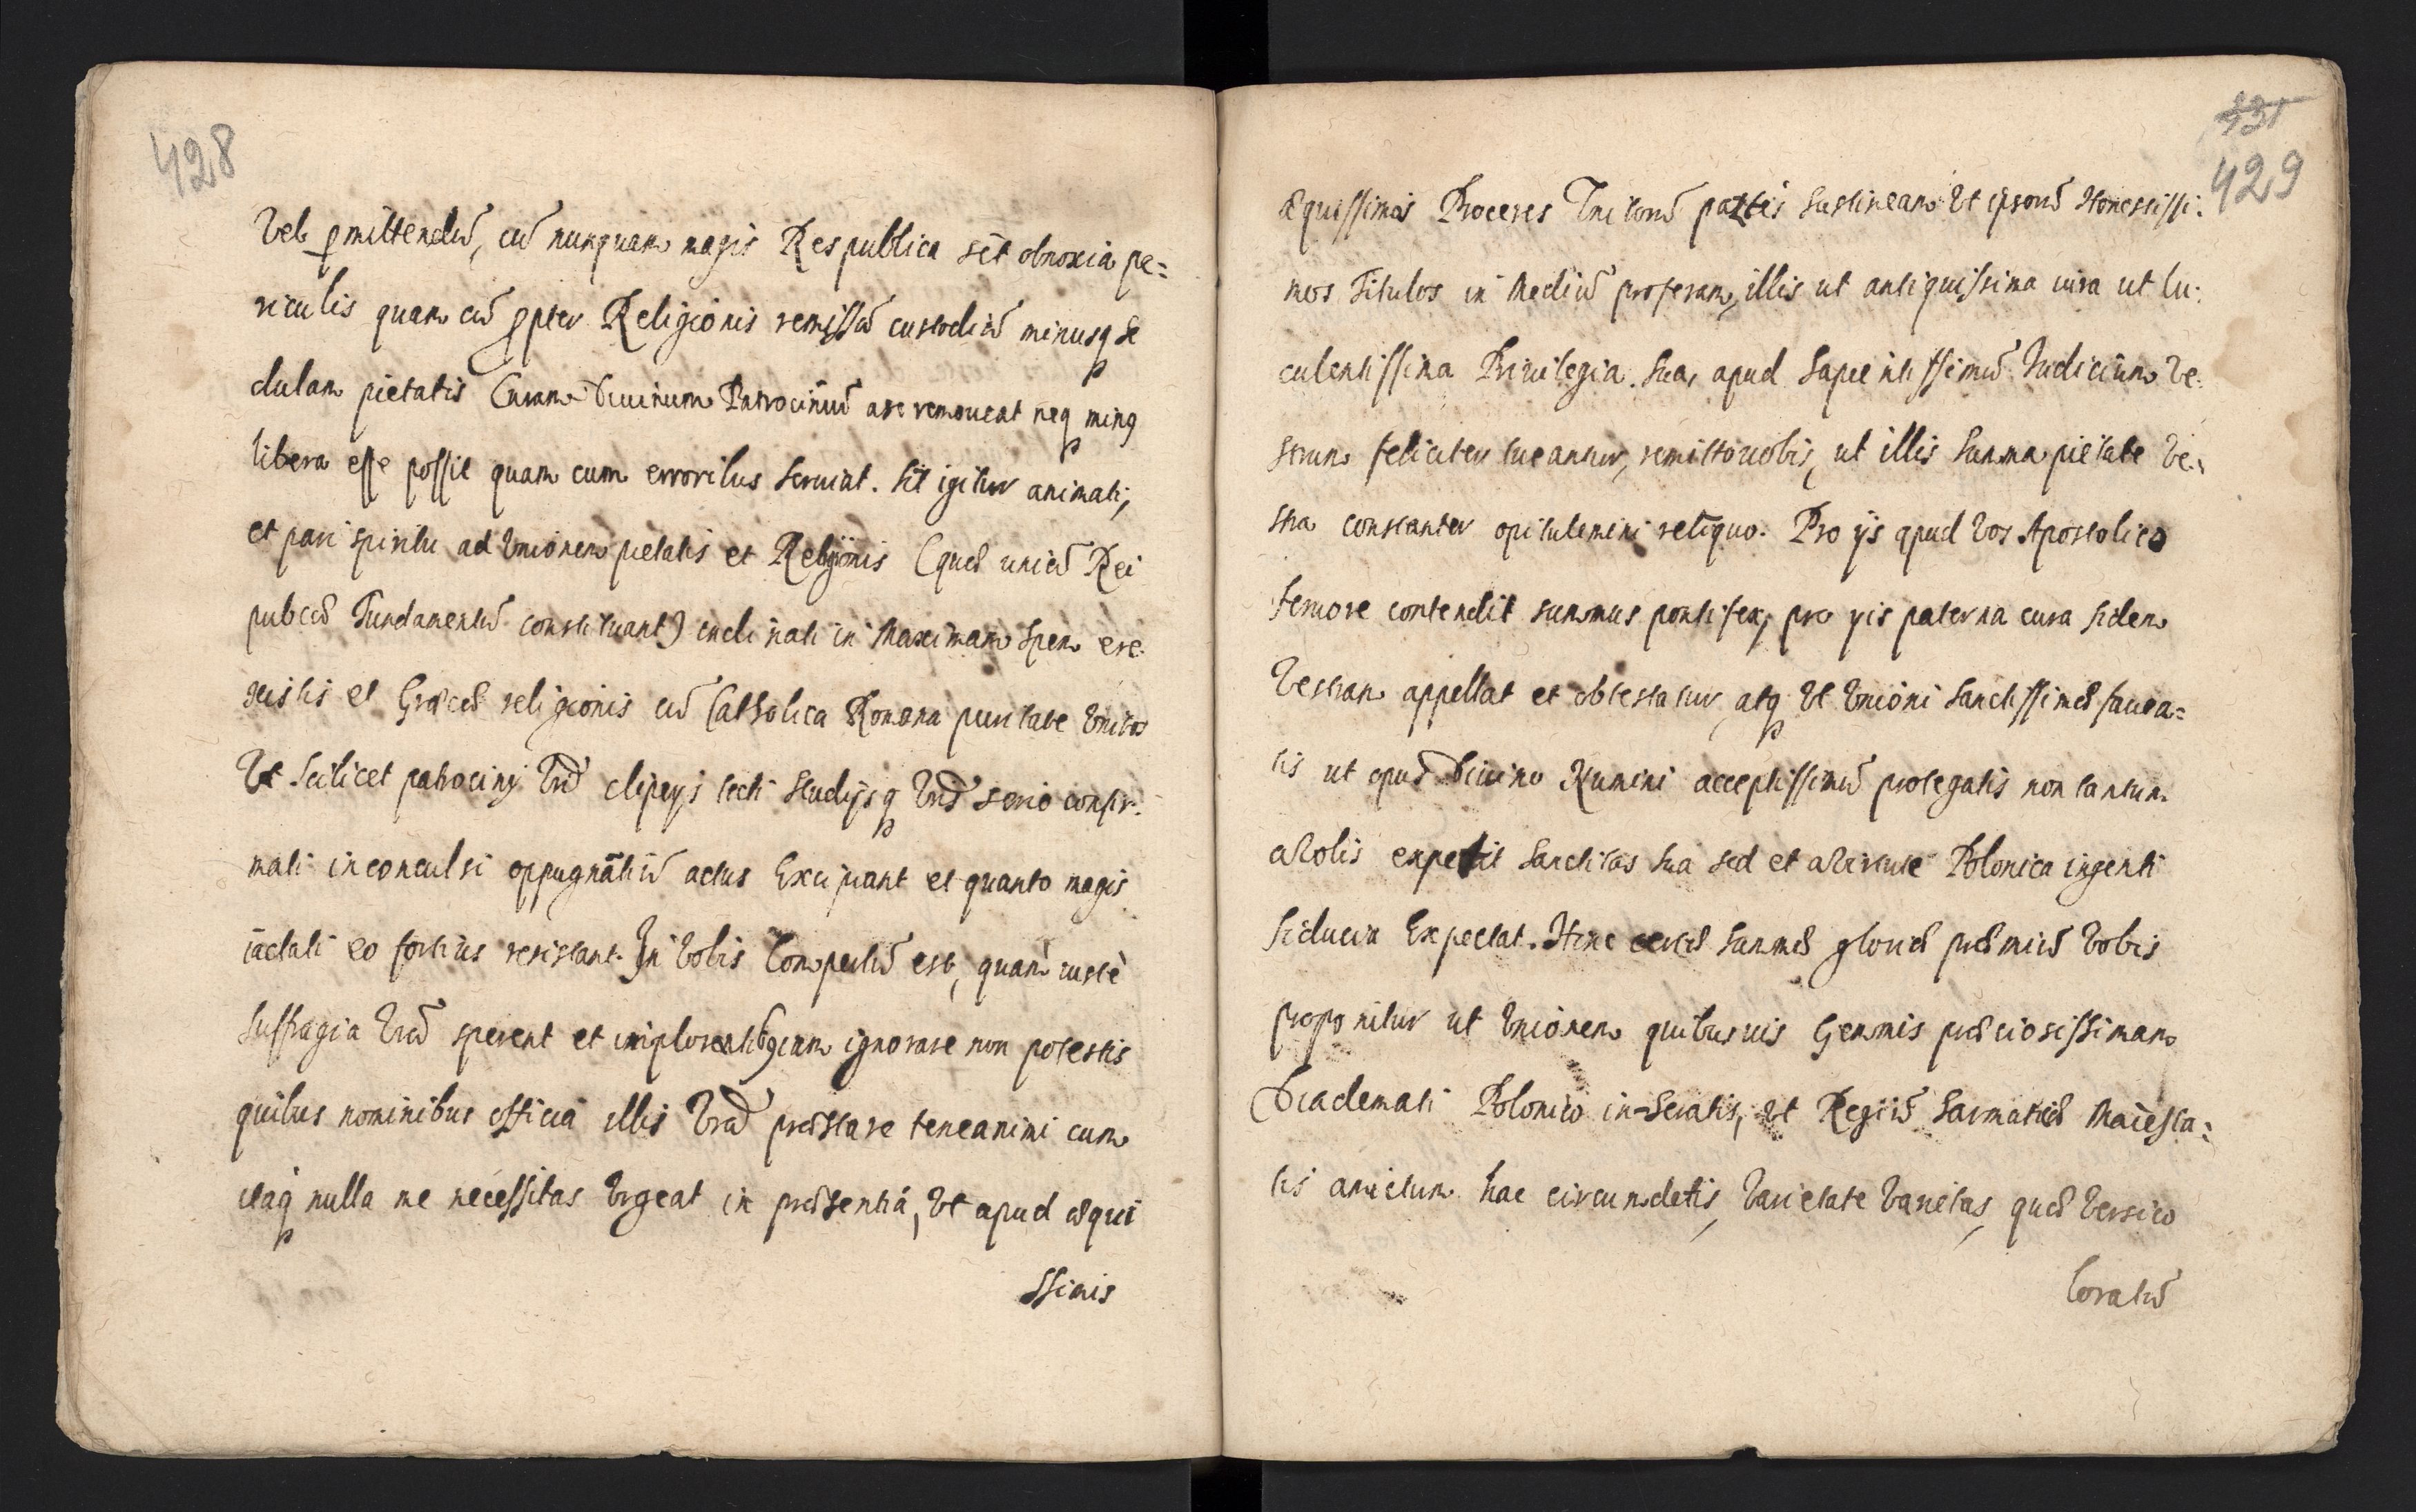 428
Vel ꝑmittendū, cū nunquam magis Respublica sit obnoxia pe=
riculis quam cū ꝓpter Religionis remissā custodiā minusq₃ se
dulam pietatis Curam Divinum Patrociniū a se removeat neq₃ minꝰ
libera esse possit quam cum erroribus serviat. Sit igitur animati,
et pari spiritu ad Unionem pietatis et Religionis (quæ unicū Rei
pubcæ Fundamentū constituant) inclinati in Maximam spem ere-
xistis et Græcæ religionis cū Catholica Romana puritate Unitos
Ut scilicet patrocinij Vrī clipeys tecti studijsq₃ Vrīs serio confir-
mati inconculsi oppugnātiū actus Excipiant et quanto magis
iactati eo fortius resistant. In Vobis Compertū est, quam iustè
suffragia Vrā sperent et implorent
quibus nominibus officia illis Vrā præstare teneamini cum
itaq₃ nulla me necessitas Urgeat in præsentiá, Ut apud æqui
ssimis
421
429
æquissimos Proceres Unitorū partes sustineam Ut ipsorū Honestissi-
mos Titulos in Mediū proferam, illis ut antiquissima iura ut lu-
culentissima Privilegia sua, apud sapientissimū Iudicium Ve-
strum feliciter tueantur, remitto vobis, ut illis summa pietate Ve-
stra constanter opitulemini relíquo. Pro ijs apud Vos Apostolico
fervore contendit summus pontifex, pro ijs paterna cura fidem
Vestram appellat et obtestatur, atq₃ Ut Unioni sanctissimæ favea=
tis ut opus Divino Numini acceptissimū protegatis non tantum
a Vobis expetit Sanctitas sua sed et a Virtute Polonica ingenti
fiducia Expectat. Hinc certæ summæ gloriæ præmiū Vobis
proponitur ut Unionem quibusvis Gemmis præciosissimam
Diademati Polonico in-seratis, Ut Regiū Sarmaticæ Maiesta-
tis amictum hac circumdetis, Varietate Varietas, quæ Versico
loratū